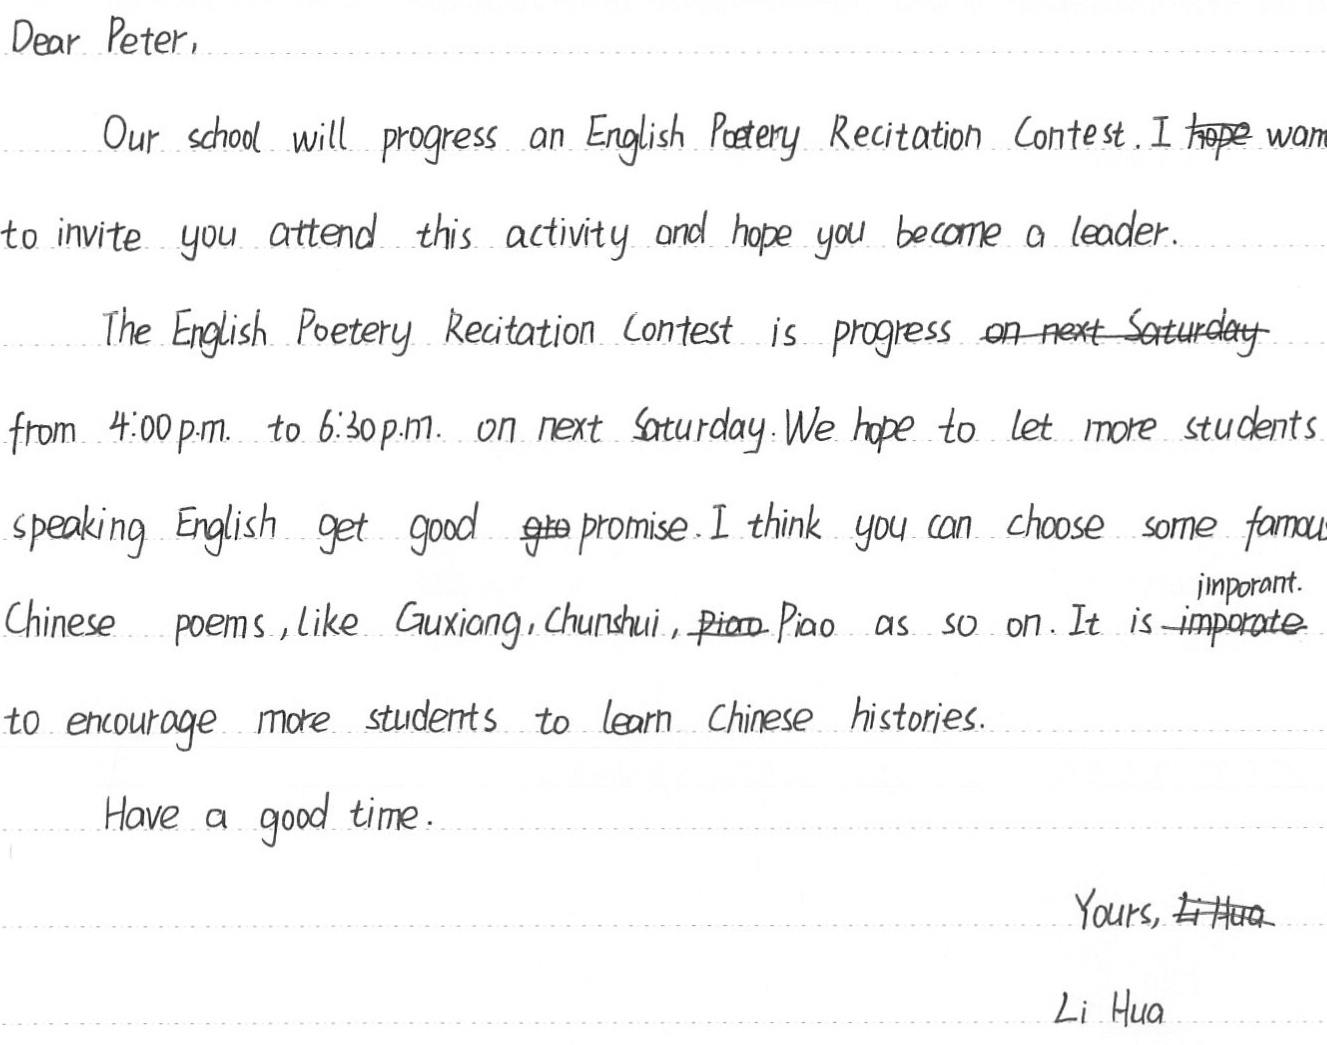 Dear Peter,
Our school will progress an English Poetery Recitation Contest. I hope want
to invite you attend this activity and hope you become a leader.
The English Poetery Recitation Contest is progress on next Saturday
from 4:00 p.m. to 6:30 p.m. on next Saturday. We hope to let more students
speaking English get good gro promise. I think you can choose some famous
imporant.
Chinese poems, like Guxiang, Chunshui, Piao Piao as so on. It is imporate
to encourage more students to learn Chinese histories.
Have a good time.
Yours, Li Hua
Li Hua